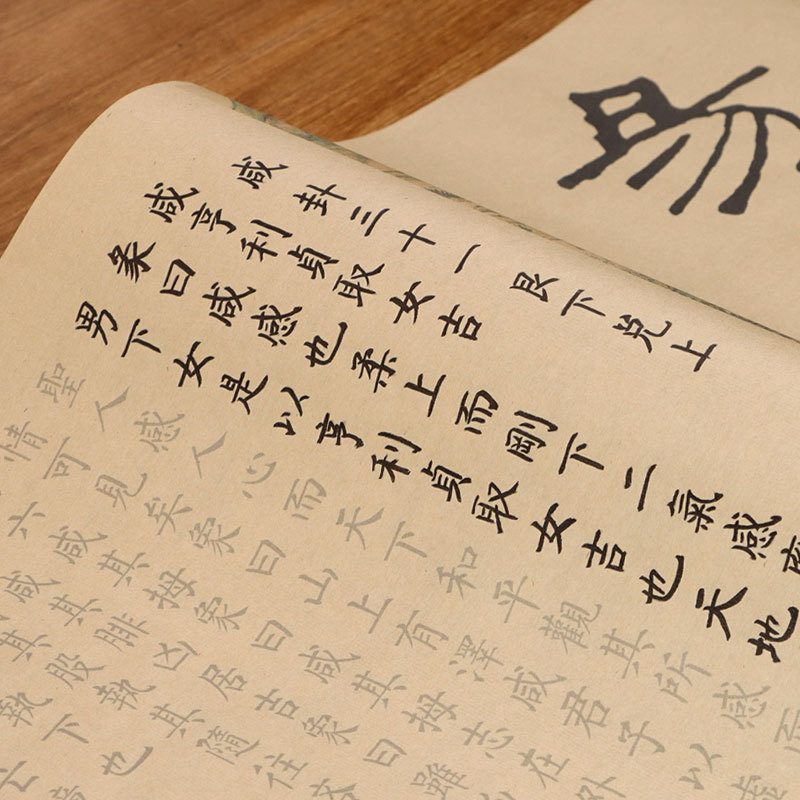 易
咸 卦三十一 艮下兌上
咸亨利貞取女吉
彖曰咸感也柔上而剛下二氣感應
男下女是以亨利貞取女吉也天地
聖人感人心而天下和平觀其所感而
情可見矣象曰山上有澤咸君子以
六咸其拇象曰咸其拇志在外
咸其腓凶居吉象曰雖
其股執其隨往吝
執下也
亡